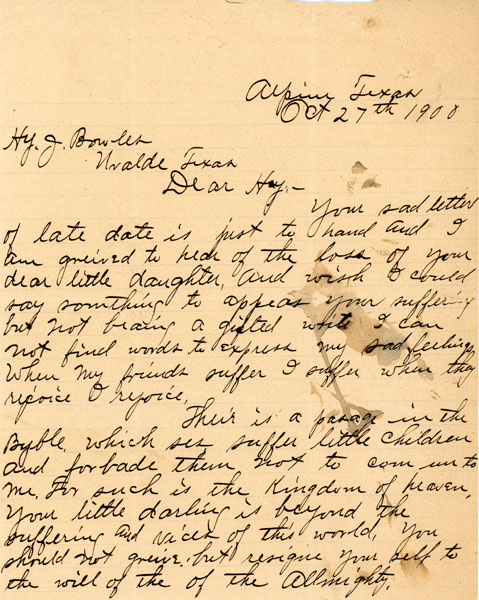 Alpine Texas
Oct 27th 1900
Hy. J. Bowles
Uvalde Texas
Dear Hy,-
Your sad letter
of late date is just to hand and I
am greived to hear of the loss of your
dear little daughter, and wish I could
say somthing to appeas your suffering
but not beaing a gifted write I can
not find words to express my sad feelings
When my friends suffer I suffer when they
rejoice I rejoice.
Their is a pasage in the
Byble, which ses suffer little children
and forbade them not to com un to
me, For such is the Kingdom of heaven,
Your little darling is beyond the
suffering and vices of this world, You
should not greive but resigne your self to
the will of the of the Allmighty.